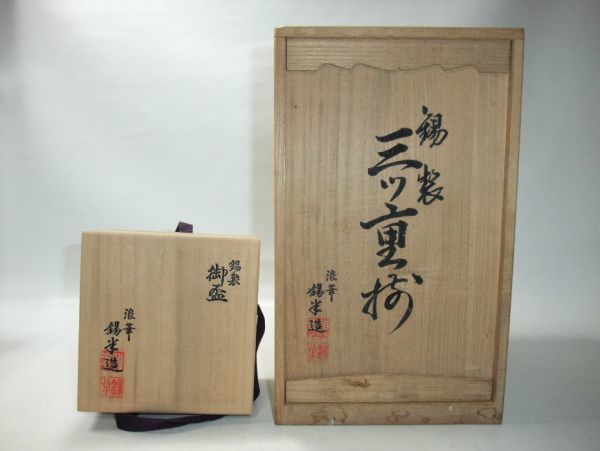 錫製
御盃
浪華
錫半造
錫製
三ツ重揃
浪華
錫半造